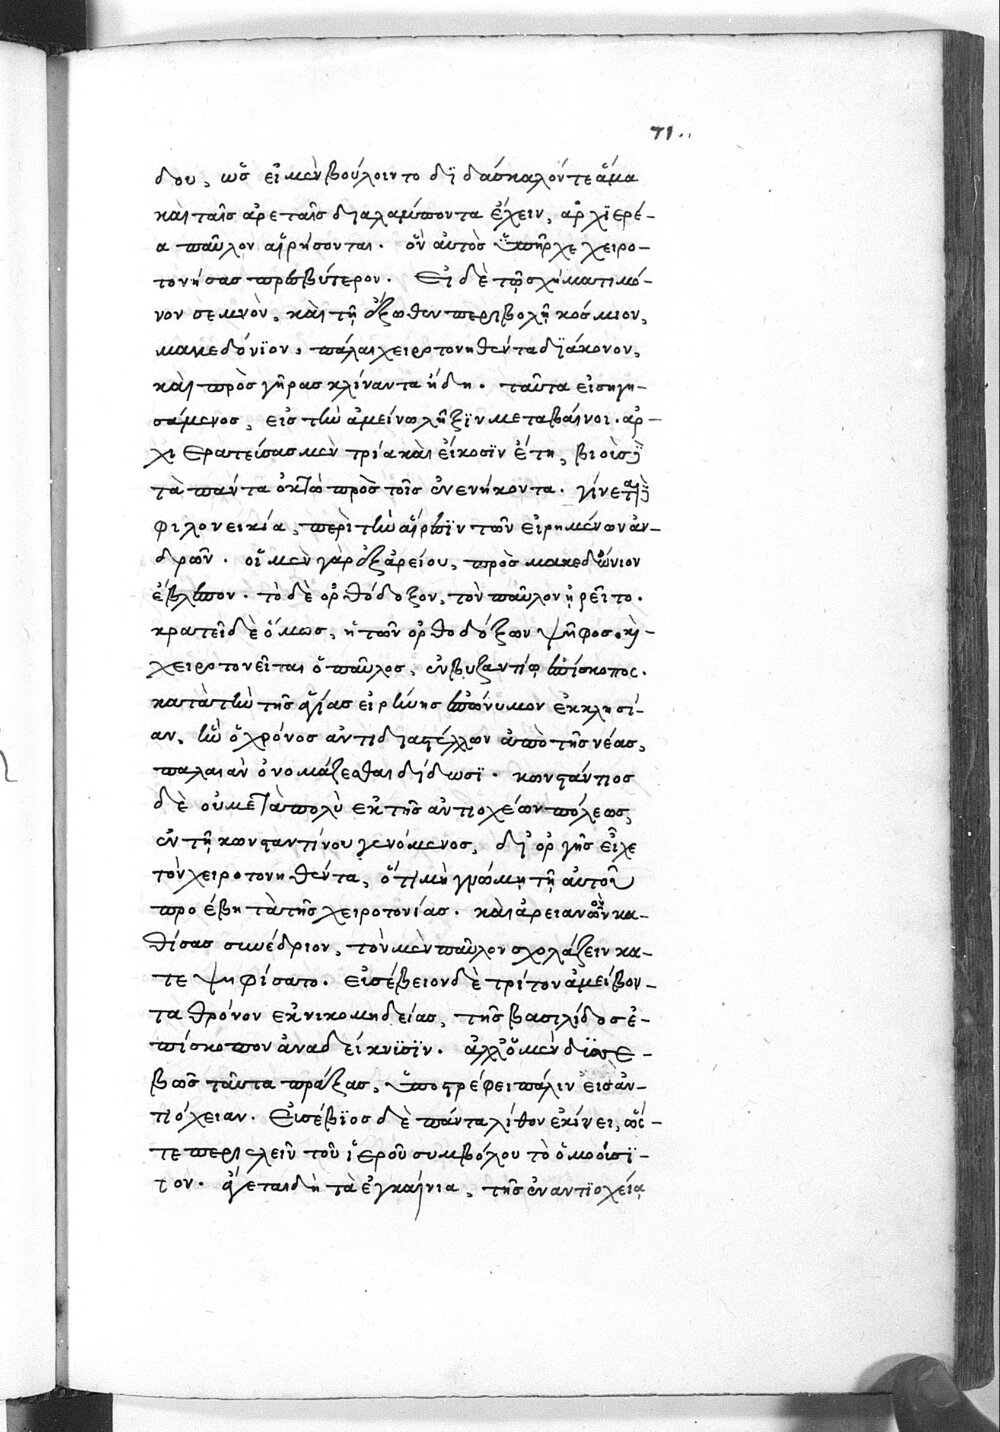 71..
δου, ὡς εἰ μὲν βούλοιντο διδάσκαλόν τε ἅμα
καὶ ταῖς ἀρεταῖς διαλάμποντα ἔχειν, ἀρχιερέ-
α παῦλον αἱρήσονται. ὃν αὐτὸς ὑπῆρχε χειρο-
τονήσας πρεσβύτερον. Εἰ δὲ τῷ σχήματι μό-
νον σεμνὸν, καὶ τῇ ἔξωθεν περιβολῇ κόσμιον,
μακεδόνιον, πάλαι χειροτονηθέντα διάκονον,
καὶ πρὸς γῆρας κλίναντα ἤδη. ταῦτα εἰσηγη-
σάμενος, εἰς τὴν ἀμείνω λῆξιν μεταβαίνει. ἀρ-
χιερατεύσας μὲν τρία καὶ εἴκοσιν ἔτη, βιοὺς
τὰ πάντα ὀκτὼ πρὸς τοῖς ἐνενήκοντα. γίνεται
φιλονεικία, περὶ τὴν αἵρεσιν τῶν εἰρημένων ἀν-
δρῶν. οἱ μὲν γὰρ ἐξ ἀρείου, πρὸς μακεδόνιον
ἔβλεπον. τὸ δὲ ὀρθόδοξον, τὸν παῦλον ᾑρεῖτο.
κρατεῖ δὲ ὅμως, ἡ τῶν ὀρθοδόξων ψῆφος. καὶ
χειροτονεῖται ὁ παῦλος, ἐν βυζαντίῳ ἐπίσκοπος.
κατὰ τὴν τῆς ἁγίας εἰρήνης ἐπώνυμον ἐκκλησί-
αν, ἣν ὁ χρόνος ἀντιδιαστέλλων ἀπὸ τῆς νέας,
παλαιὰν ὀνομάζεσθαι δίδωσι. κωνστάντιος
δὲ οὐ μετὰ πολὺ ἐκ τῆς ἀντιοχέων πόλεως,
ἐν τῇ κωνσταντίνου γενόμενος, δι' ὀργῆς εἶχε
τὸν χειροτονηθέντα, ὅτι μὴ γνώμῃ τῇ αὐτοῦ
προέβη τὰ τῆς χειροτονίας. καὶ ἀρειανῶν κα-
θίσας συνέδριον, τὸν μὲν παῦλον σχολάζειν κα-
τεψηφίσατο. εὐσέβειον δὲ τρίτον ἀμείβον-
τα θρόνον ἐκ νικομηδείας, τῆς βασιλίδος ἐ-
πίσκοπον ἀναδείκνυσιν. ἀλλ' ὁ μὲν δυσσε-
βῶς ταῦτα πράξας, ὑποστρέφει πάλιν εἰς ἀν-
τιόχειαν. Εὐσέβιος δὲ πάντα λίθον ἐκίνει, ὥς-
τε περιελεῖν τοῦ ἱεροῦ συμβόλου τὸ ὁμοούσι-
ον. ἄγεται δὴ τὰ ἐγκαίνια, τῆς ἐν ἀντιοχείᾳ